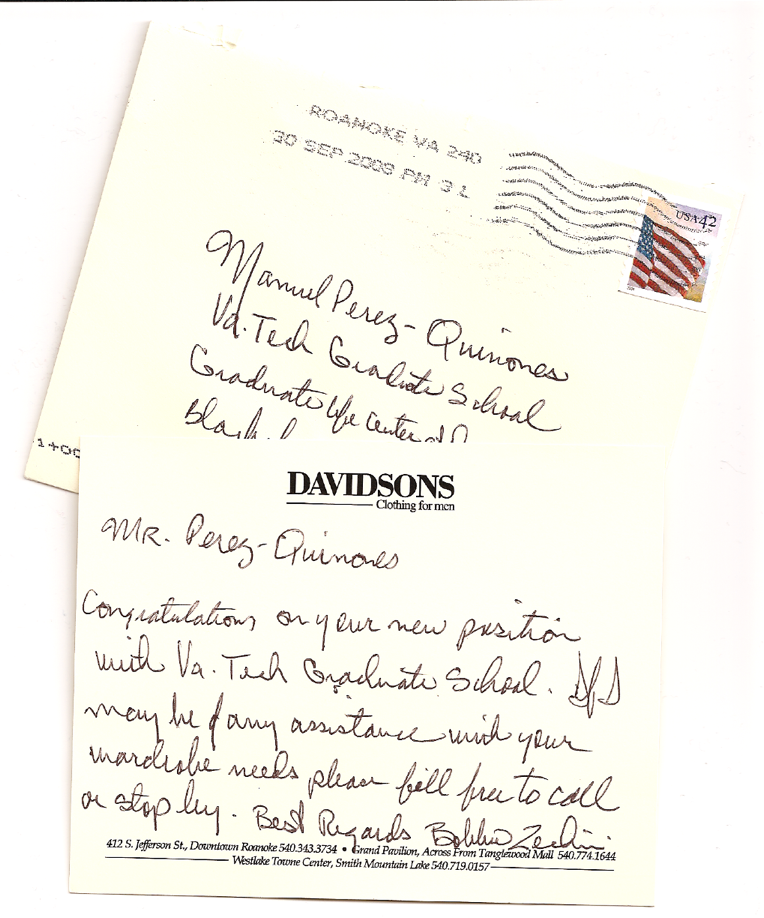 ROANOKE VA 240
30 SEP 2008 PM 3 L
USA 42
Manuel Perez-Quinones
Va. Tech Graduate School
Graduate Life Center
1+00
DAVIDSONS
Clothing for men
Mr. Perez-Quinones
Congratulations on your new position
with Va. Tech Graduate School. If I
may be of any assistance with your
wardrobe needs please fell free to call
or stop by. Best Regards Bobbie
412 S. Jefferson St., Downtown Roanoke 540.343.3734 • Grand Pavilion, Across From Tanglewood Mall 540.774.1644
Westlake Towne Center, Smith Mountain Lake 540.719.0157